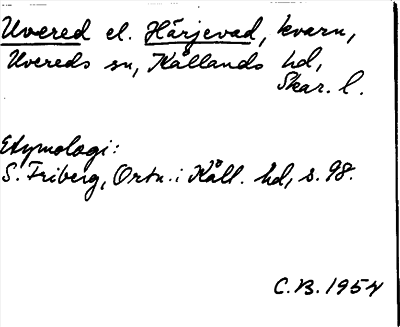 Uvered el. Härjevad, kvarn,
Uvereds sn, Kållands hd,
Skar. l.
Etymologi:
S. Friberg, Ortn. i Kåll. hd, s. 98.
C.B. 1954